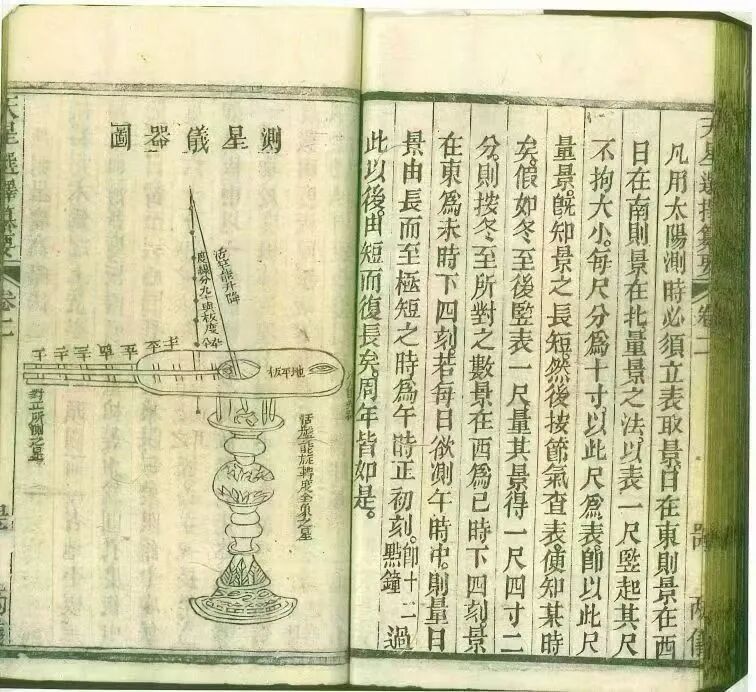 天星選擇纂要 卷二
凡用太陽測時必須立表取景。日在東則景在西
日在南則景在北。量景之法。以表一尺竪起。其尺
不拘大小。每尺分爲十寸。以此尺爲表。卽以此尺
量景。旣知景之長短。然後按節氣查表。便知某時
矣。假如冬至後竪表一尺。量其景得一尺四寸二
分。則按冬至所對之數。景在西爲巳時下四刻。景
在東爲未時下四刻。若每日欲測午時中。則量日
景由長而至極短之時爲午時正初刻。卽十二點鐘過
此以後。由短而復長矣。周年皆如是。
測星儀器圖
能升降
度線分九十與板度
地平板
活盤能旋轉度
之星
對正所測之星
天星選擇纂要 卷二